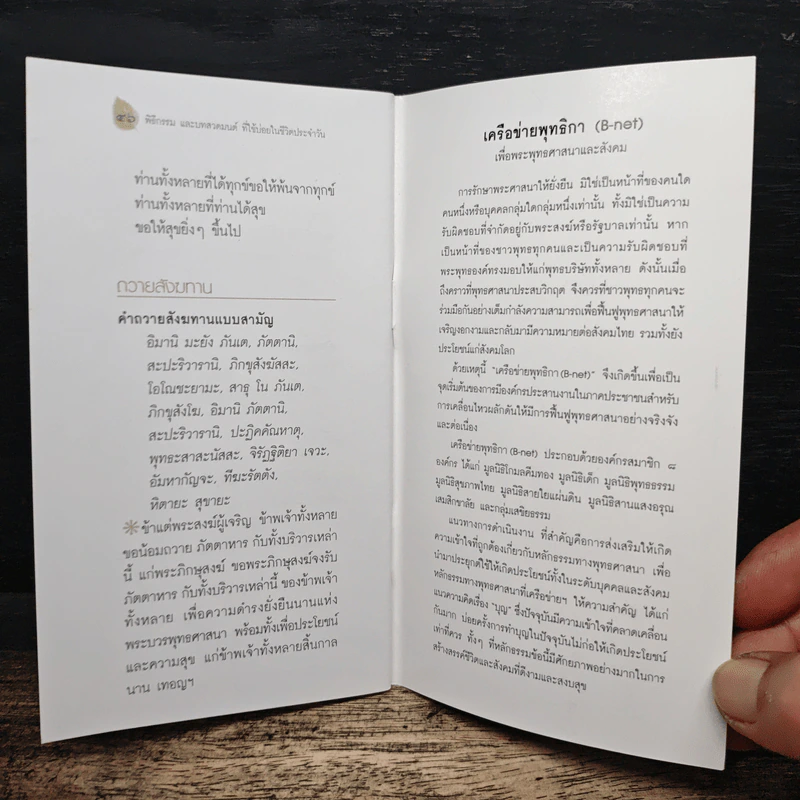 ๕๖
พิธีกรรม และบทสวดมนต์ ที่ใช้บ่อยในชีวิตประจำวัน
ท่านทั้งหลายที่ได้ทุกข์ขอให้พ้นจากทุกข์
ท่านทั้งหลายที่ท่านได้สุข
ขอให้สุขยิ่งๆ ขึ้นไป
ถวายสังฆทาน
คำถวายสังฆทานแบบสามัญ
อิมานิ มะยัง ภันเต, ภัตตานิ,
สะปะริวารานิ, ภิกขุสังฆัสสะ,
โอโณชะยามะ, สาธุ โน ภันเต,
ภิกขุสังโฆ, อิมานิ ภัตตานิ,
สะปะริวารานิ, ปะฏิคคัณหาตุ,
พุทธะสาสะนัสสะ, จิรัฏฐิติยา เจวะ,
อัมหากัญจะ, ทีฆะรัตตัง,
หิตายะ สุขายะ
ข้าแต่พระสงฆ์ผู้เจริญ ข้าพเจ้าทั้งหลาย
ขอน้อมถวาย ภัตตาหาร กับทั้งบริวารเหล่า
นี้ แก่พระภิกษุสงฆ์ ขอพระภิกษุสงฆ์จงรับ
ภัตตาหาร กับทั้งบริวารเหล่านี้ ของข้าพเจ้า
ทั้งหลาย เพื่อความดำรงยั่งยืนนานแห่ง
พระบวรพุทธศาสนา พร้อมทั้งเพื่อประโยชน์
และความสุข แก่ข้าพเจ้าทั้งหลายสิ้นกาล
นาน เทอญฯ
เครือข่ายพุทธิกา (B-net)
เพื่อพระพุทธศาสนาและสังคม
การรักษาพระศาสนาให้ยั่งยืน มิใช่เป็นหน้าที่ของคนใด
คนหนึ่งหรือบุคคลกลุ่มใดกลุ่มหนึ่งเท่านั้น ทั้งมิใช่เป็นความ
รับผิดชอบที่จำกัดอยู่กับพระสงฆ์หรือรัฐบาลเท่านั้น หาก
เป็นหน้าที่ของชาวพุทธทุกคนและเป็นความรับผิดชอบที่
พระพุทธองค์ทรงมอบให้แก่พุทธบริษัททั้งหลาย ดังนั้นเมื่อ
ถึงคราวที่พุทธศาสนาประสบวิกฤต จึงควรที่ชาวพุทธทุกคนจะ
ร่วมมือกันอย่างเต็มกำลังความสามารถเพื่อฟื้นฟูพุทธศาสนาให้
เจริญงอกงามและกลับมามีความหมายต่อสังคมไทย รวมทั้งยัง
ประโยชน์แก่สังคมโลก
ด้วยเหตุนี้ "เครือข่ายพุทธิกา (B-net)" จึงเกิดขึ้นเพื่อเป็น
จุดเริ่มต้นของการมีองค์กรประสานงานในภาคประชาชนสำหรับ
การเคลื่อนไหวผลักดันให้มีการฟื้นฟูพุทธศาสนาอย่างจริงจัง
และต่อเนื่อง
เครือข่ายพุทธิกา (B-net) ประกอบด้วยองค์กรสมาชิก ๘
องค์กร ได้แก่ มูลนิธิโกมลคีมทอง มูลนิธิเด็ก มูลนิธิพุทธธรรม
มูลนิธิสุขภาพไทย มูลนิธิสายใยแผ่นดิน มูลนิธิสานแสงอรุณ
เสมสิกขาลัย และกลุ่มเสขิยธรรม
แนวทางการดำเนินงาน ที่สำคัญคือการส่งเสริมให้เกิด
ความเข้าใจที่ถูกต้องเกี่ยวกับหลักธรรมทางพุทธศาสนา เพื่อ
นำมาประยุกต์ใช้ให้เกิดประโยชน์ทั้งในระดับบุคคลและสังคม
หลักธรรมทางพุทธศาสนาที่เครือข่ายฯ ให้ความสำคัญ ได้แก่
แนวความคิดเรื่อง "บุญ" ซึ่งปัจจุบันมีความเข้าใจที่คลาดเคลื่อน
กันมาก บ่อยครั้งการทำบุญในปัจจุบันไม่ก่อให้เกิดประโยชน์
เท่าที่ควร ทั้งๆ ที่หลักธรรมข้อนี้มีศักยภาพอย่างมากในการ
สร้างสรรค์ชีวิตและสังคมที่ดีงามและสงบสุข